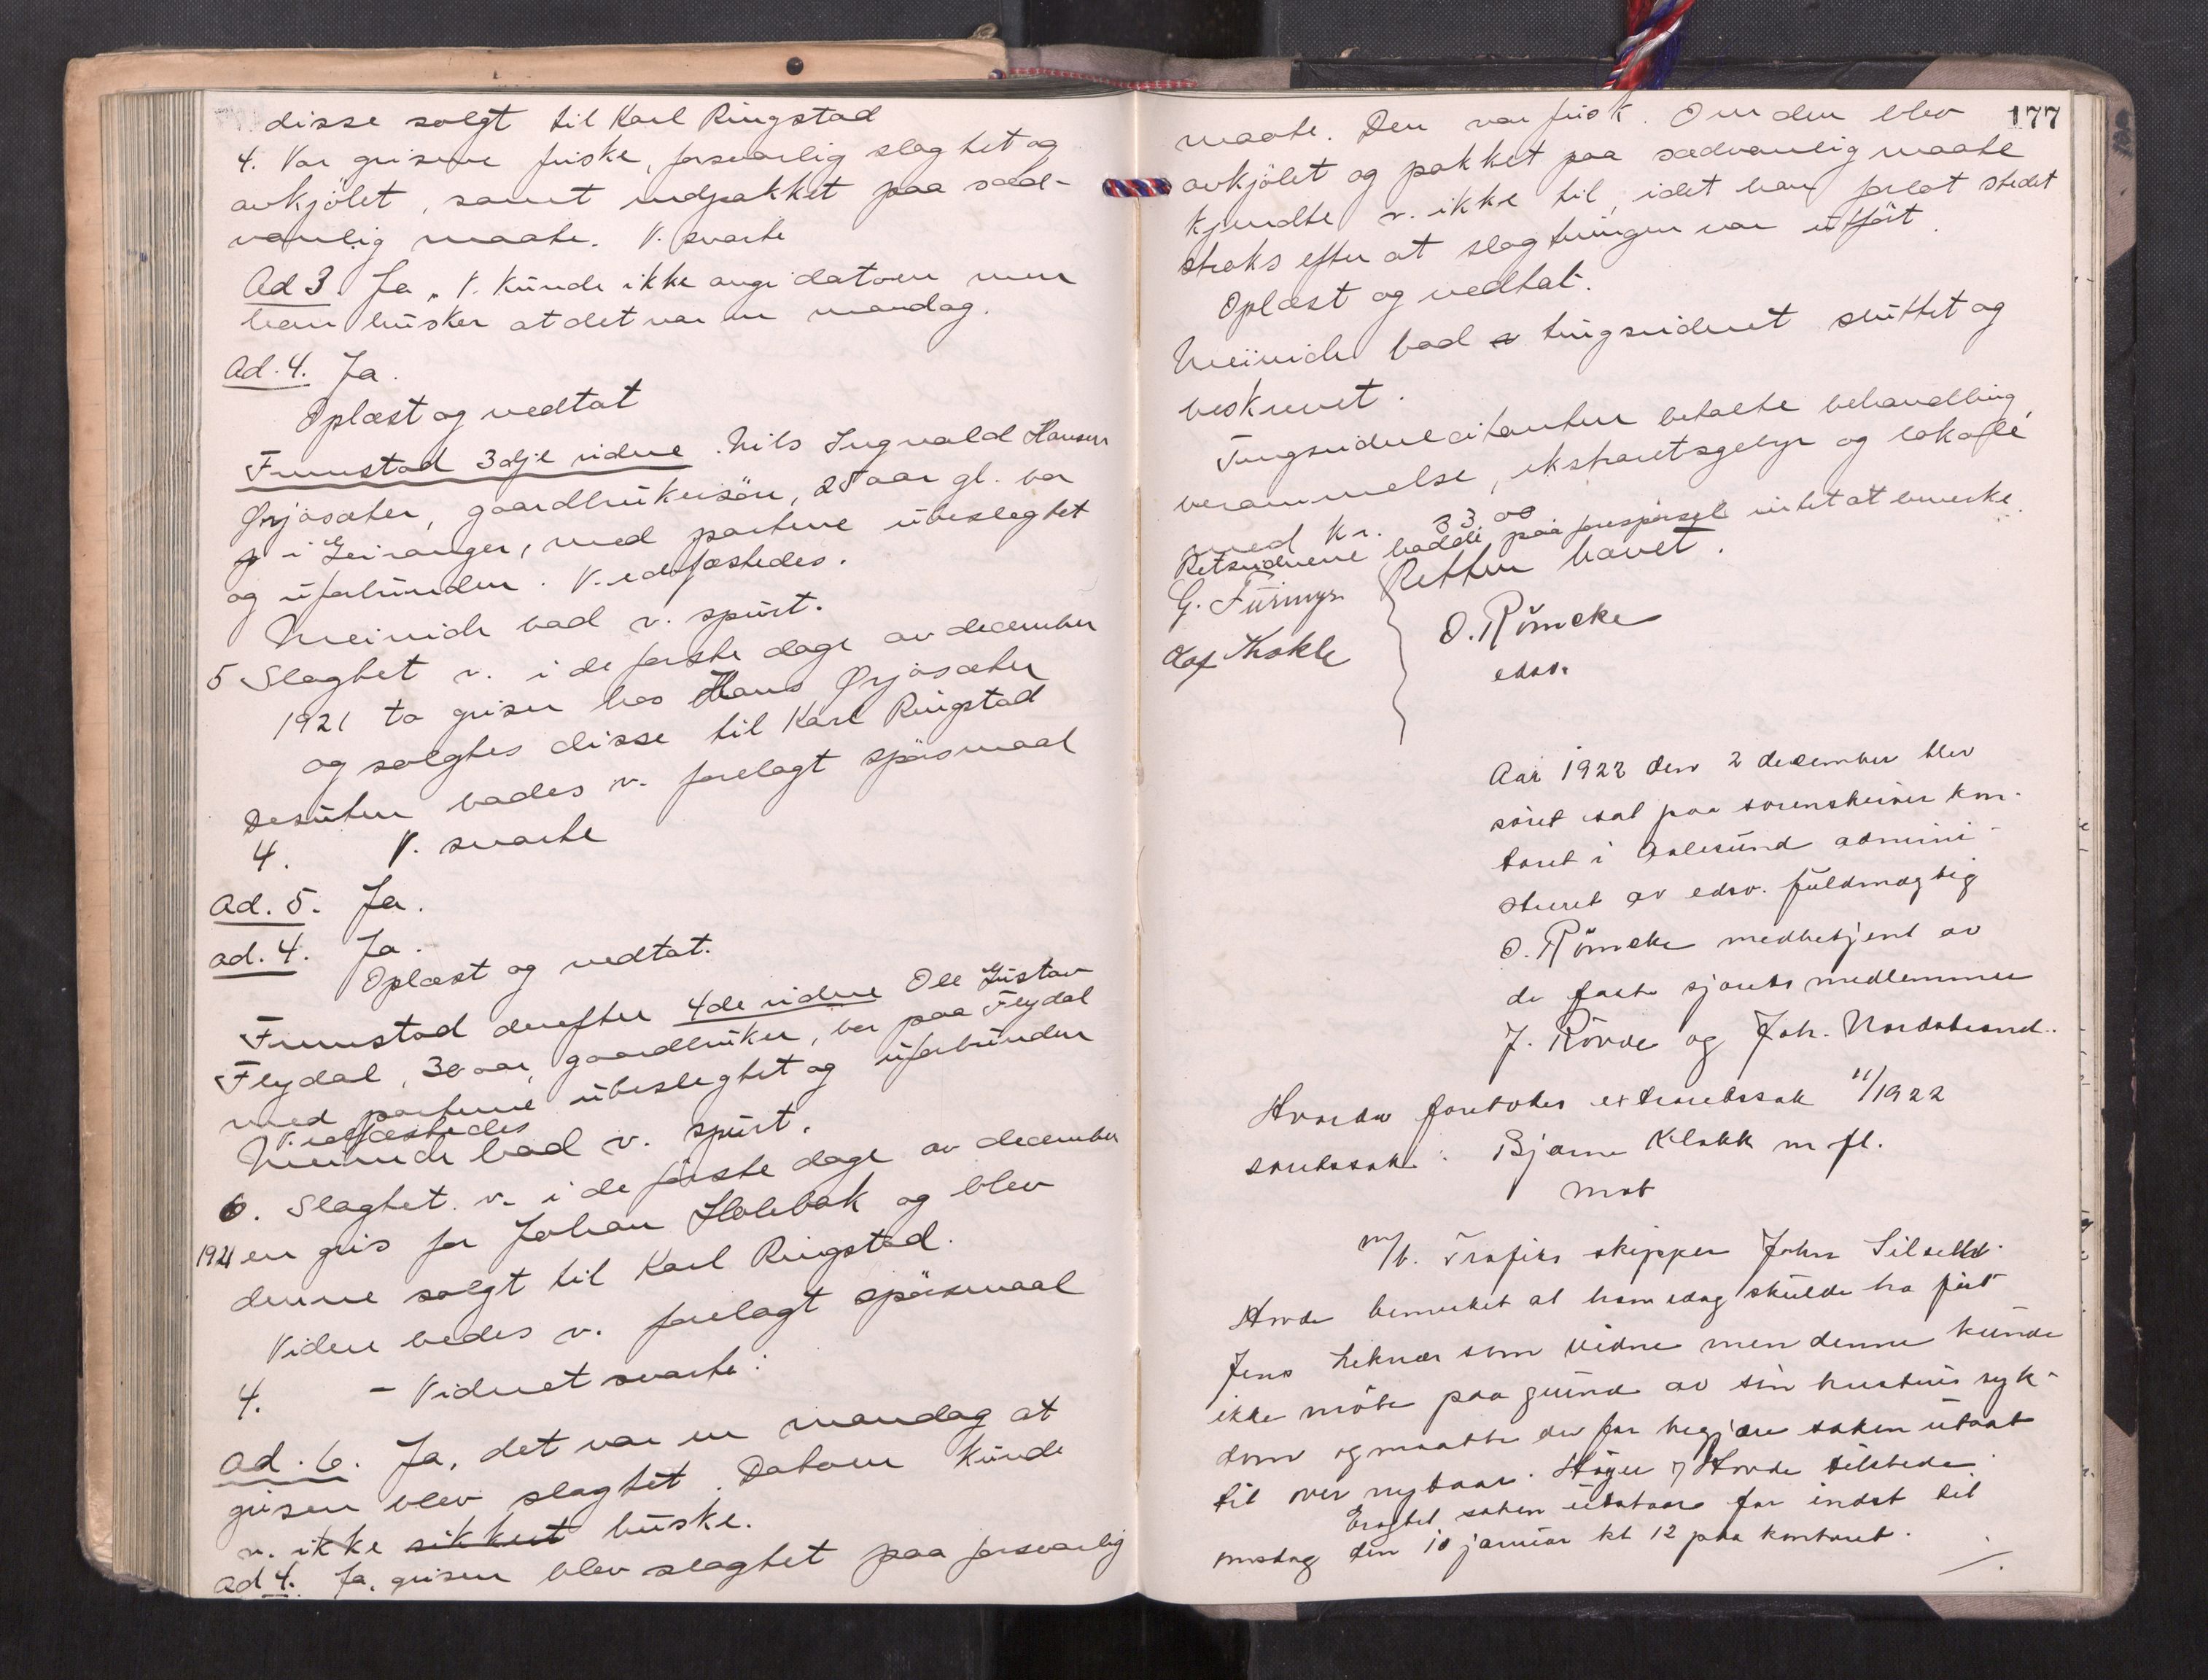 disse solgt til Karl Ringstad
4. Var grisene friske, forsvarlig slagtet og
avkjølet, samt indpakket paa sæd-
vanlig maate. V. svarte
Ad 3. Ja, V. kunde ikke angi datoen men
han husker at det var en mandag.
Ad. 4. Ja.
Oplæst og vedtat
Fremstod 3dje vidne. Nils Ingvald Hansen
Ørjasæter, gaardbrukersøn, 25 aar gl. bor
i Geiranger, med partene ubeslegtet
og uforbunden. V. edfæstedes.
Meinich bad v. spurt.
5 Slagtet v. i de første dage av december
1921 to griser hos Hans Ørjasæter
og solgtes disse til Karl Ringstad
Desuten bades v. forelagt spørsmaal
4. V. svarte
Ad. 5. Ja.
ad. 4. Ja.
Oplæst og vedtat.
Fremstod derefter 4de vidne Ole Gustav
Flydal, 30 aar, gaardbruker, bor paa Flydal
med partene ubeslegtet og uforbunden
V. edfæstedes
Meinich bad v. spurt.
6. Slagtet v. i de første dage av december
1921 en gris for Johan Holebak og blev
denne solgt til Karl Ringstad.
Videre bedes v. forelagt spørsmaal
4. - Vidnet svarte:
Ad. 6. Ja, det var en mandag at
grisen blev slagtet. Datoen kunde
v. ikke sikkert huske.
Ad 4. Ja, grisen blev slagtet paa forsvarlig
177
maate. Den var frisk. Om den blev
avkjølet og pakket paa sædvanlig maate
kjendte v. ikke til, idet han forlot stedet
straks efter at slagtningen var utført.
Oplæst og vedtat.
Meinich bad tingsvidnet sluttet og
beskrevet.
Tingsvidnecitanten betalte behandling,
berammelse, ekstraretsgebyr og lokale
med kr. 33.00
Retsvidnene hadde paa forespørsel intet at bemerke.
Retten hævet.
G. Furmyr
O. Römcke
Olaf Kokle
edsv.
Aar 1922 den 2 december blev
sjøret sat paa sorenskriver kon-
toret i Aalesund admini-
streret av edsv. fuldmægtig
O. Römcke medbetjent av
de faste sjørets medlemmer
J. Rovde og Joh. Nordstrand.
Hvorda foretokes extraretssak 11/1922
sjøretssak: Bjarne Klokk m. fl.
mot
m/k. Trafiks skipper John Silseth.
Hovde bemerket at han idag skulde ha ført
Jens Leknes som vidne men denne kunde
ikke møte paa grund av sin hustrus syk-
dom og maatte derfor begjære saken utsat
til over nytaar. Høyer & Hovde tilstede.
Eragtet saken utstaar for indst til
onsdag den 10 januar kl 12 paa kontoret.